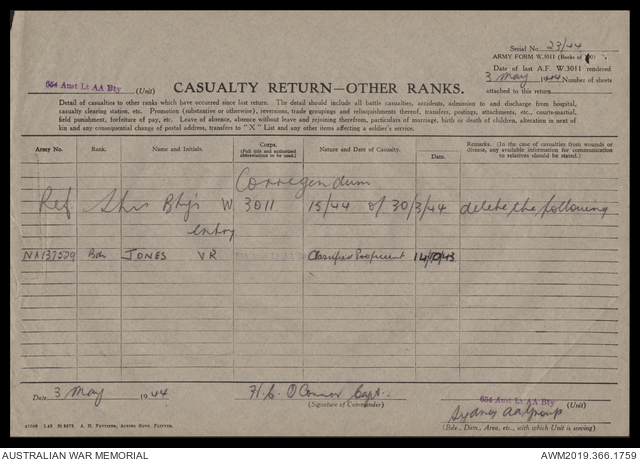 Serial No. 23/44
ARMY FORM W.3011 (Books of 100)
Date of last A.F. W.3011 rendered
3 May 1944 Number of sheets
attached to this return
654 Aust Lt AA Bty (Unit)
CASUALTY RETURN—OTHER RANKS.
Detail of casualties to other ranks which have occurred since last return. The detail should include all battle casualties, accidents, admission to and discharge from hospital,
casualty clearing station, etc. Promotion (substantive or otherwise), reversions, trade groupings and relinquishments thereof, transfers, postings, attachments, etc., courts-martial,
field punishment, forfeiture of pay, etc. Leave of absence, absence without leave and rejoining therefrom, particulars of marriage, birth or death of children, alteration in next of
kin and any consequential change of postal address, transfers to "X" List and any other items affecting a soldier's service.
Army No. Rank. Name and Initials. Corps. (Full title and authorized abbreviations to be used.) Nature and Date of Casualty. Date. Remarks. (In the case of casualties from wounds or disease, any available information for communication to relatives should be stated.)
Corregendum
Ref this Bty's W 3011 15/44 of 30/3/44 delete the following
entry
NX137529 Bdr JONES VR Classified Proficient 14/10/43
Date 3 May 1944 H.C. O'Connor Capt.
(Signature of Commander)
654 Aust Lt AA Bty (Unit)
Sydney AA Group
(Bde., Divn., Area, etc., with which Unit is serving)
A. H. Pettifer, Acting Govt. Printer.
AUSTRALIAN WAR MEMORIAL AWM2019.366.1759